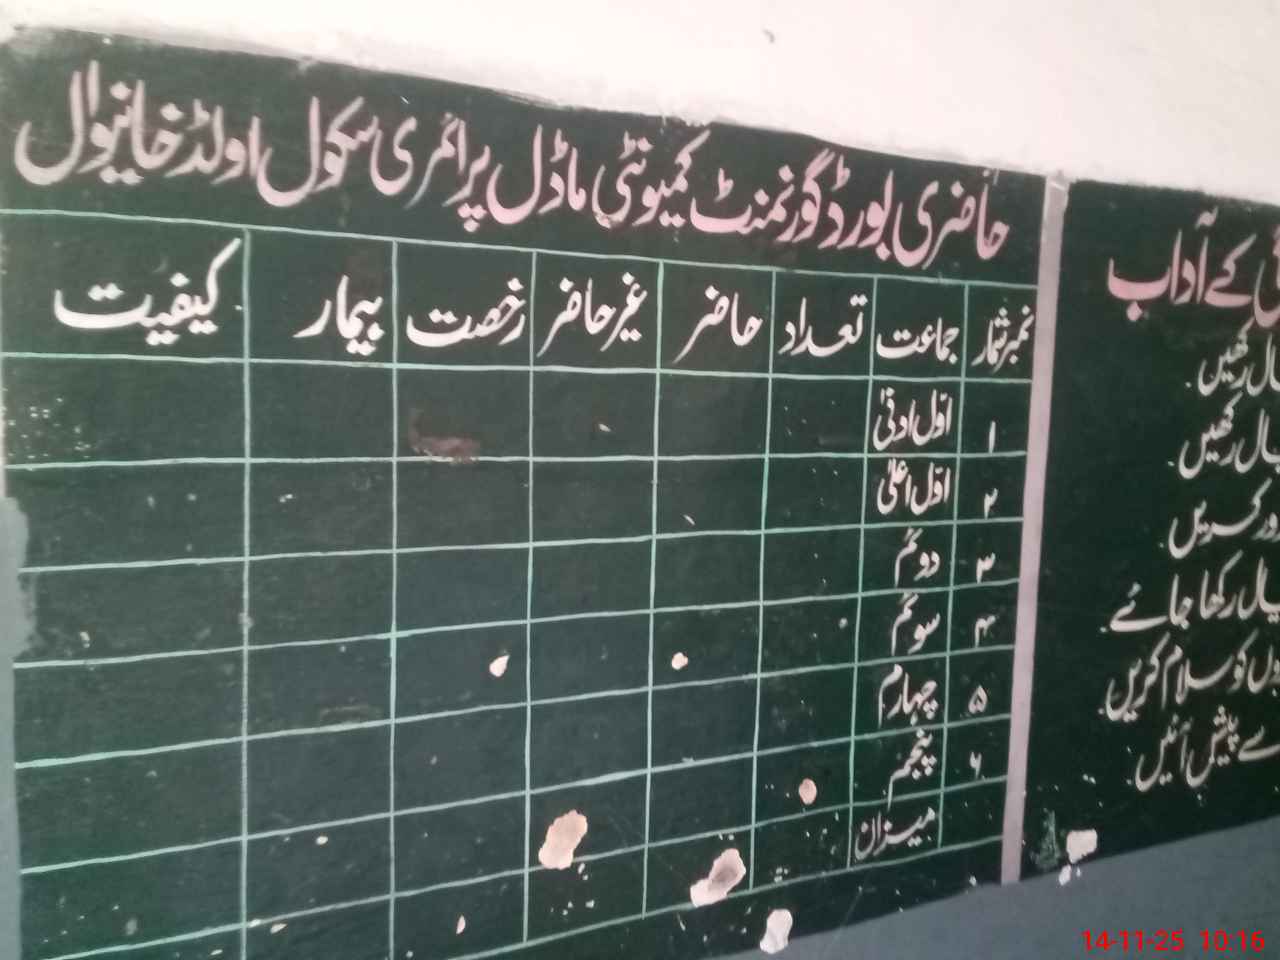 حاضری بورڈ گورنمنٹ کمیونٹی ماڈل پرائمری سکول اولڈ خانیوال
نمبر شمار جماعت تعداد حاضر غیر حاضر رخصت بیمار کیفیت
۱ اوّل ادنیٰ
۲ اوّل اعلیٰ
۳ دوئم
۴ سوئم
۵ چہارم
۶ پنجم
میزان
کے آداب
رکھیں۔
رکھیں۔
کریں۔
رکھا جائے۔
کو سلام کریں۔
سے پیش آئیں۔
14-11-25 10:16